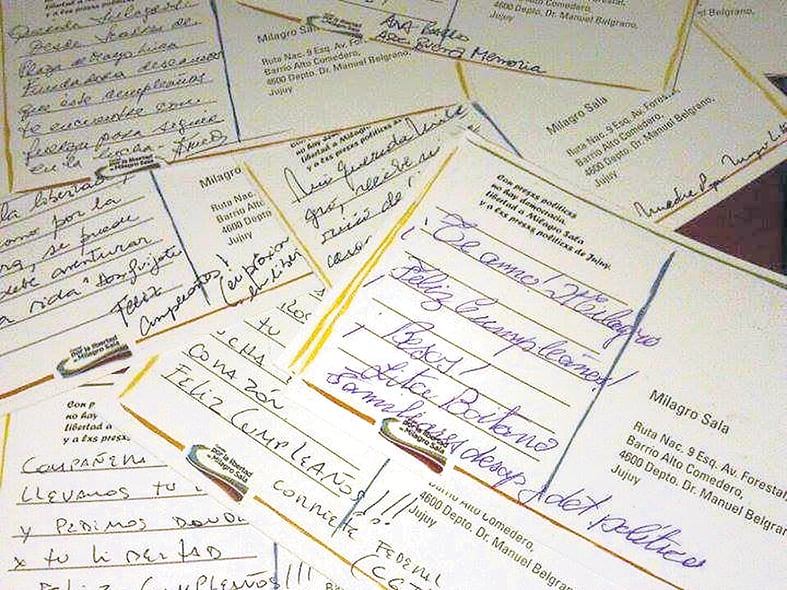 Desde
Plaza de Mayo Linea
Fundadora deseamos
que este cumpleaños
te encuentre con
fuerzas para seguir
en la lucha.
por la libertad
de Milagro Sala
Milagro Sala
Ruta Nac. 9 Esq. Av. Forestal,
Barrio Alto Comedero,
4600 Depto. Dr. Manuel Belgrano,
Jujuy
4600 Depto. Dr. Manuel Belgrano,
Jujuy
Memoria
Belgrano,
Milagro Sala
Ruta Nac. 9 Esq. Av. Forestal,
Barrio Alto Comedero,
4600 Depto. Dr. Manuel Belgrano,
Jujuy
la libertad
como por la
se puede
debe aventurar
la vida"
Feliz
Cumpleaños!
por la libertad
de Milagro Sala
Milagro
Ruta Nac.
Barrio
4600 Depto
Jujuy
no hay
libertad a Milagro
y a txs presxs políticxs
Mi querida
Con presxs políticxs
no hay democracia
libertad a Milagro Sala
y a txs presxs políticxs de Jujuy.
¡Te amo! Milagro
¡Feliz Cumpleaños!
¡Besos!
Lita Boitano
Familiares desap y det políticos
por la libertad
de Milagro Sala
Milagro Sala
Ruta Nac. 9 Esq. Av. Forestal,
Barrio Alto Comedero,
4600 Depto. Dr. Manuel Belgrano,
Jujuy
TU
CORAZÓN
FELIZ CUMPLEAÑOS!!!
CORRIENTE
FEDERAL
por la libertad
de Milagro Sala
Con p
no hay
libertad a
y a txs presxs
LLEVAMOS TU
Y PEDIMOS
X TU LIBERTAD
FELIZ CUMPLEAÑOS!!!
Barrio Alto Comedero,
4600 Depto. Dr. Manuel Belgrano,
Jujuy